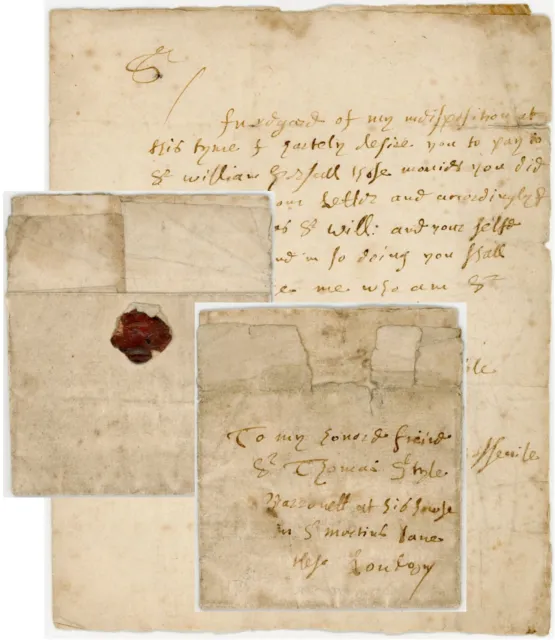 Sr
In regard of my indisposition at
this tyme I hartely desire you to pay to
Sr William those monies you did
our letter and accordingly
as Sr Will: and your selfe
and in so doing you shall
me who am Sr
To my honord freind
Sr Thomas Style
Barronett at his house
in St martins lane
these London